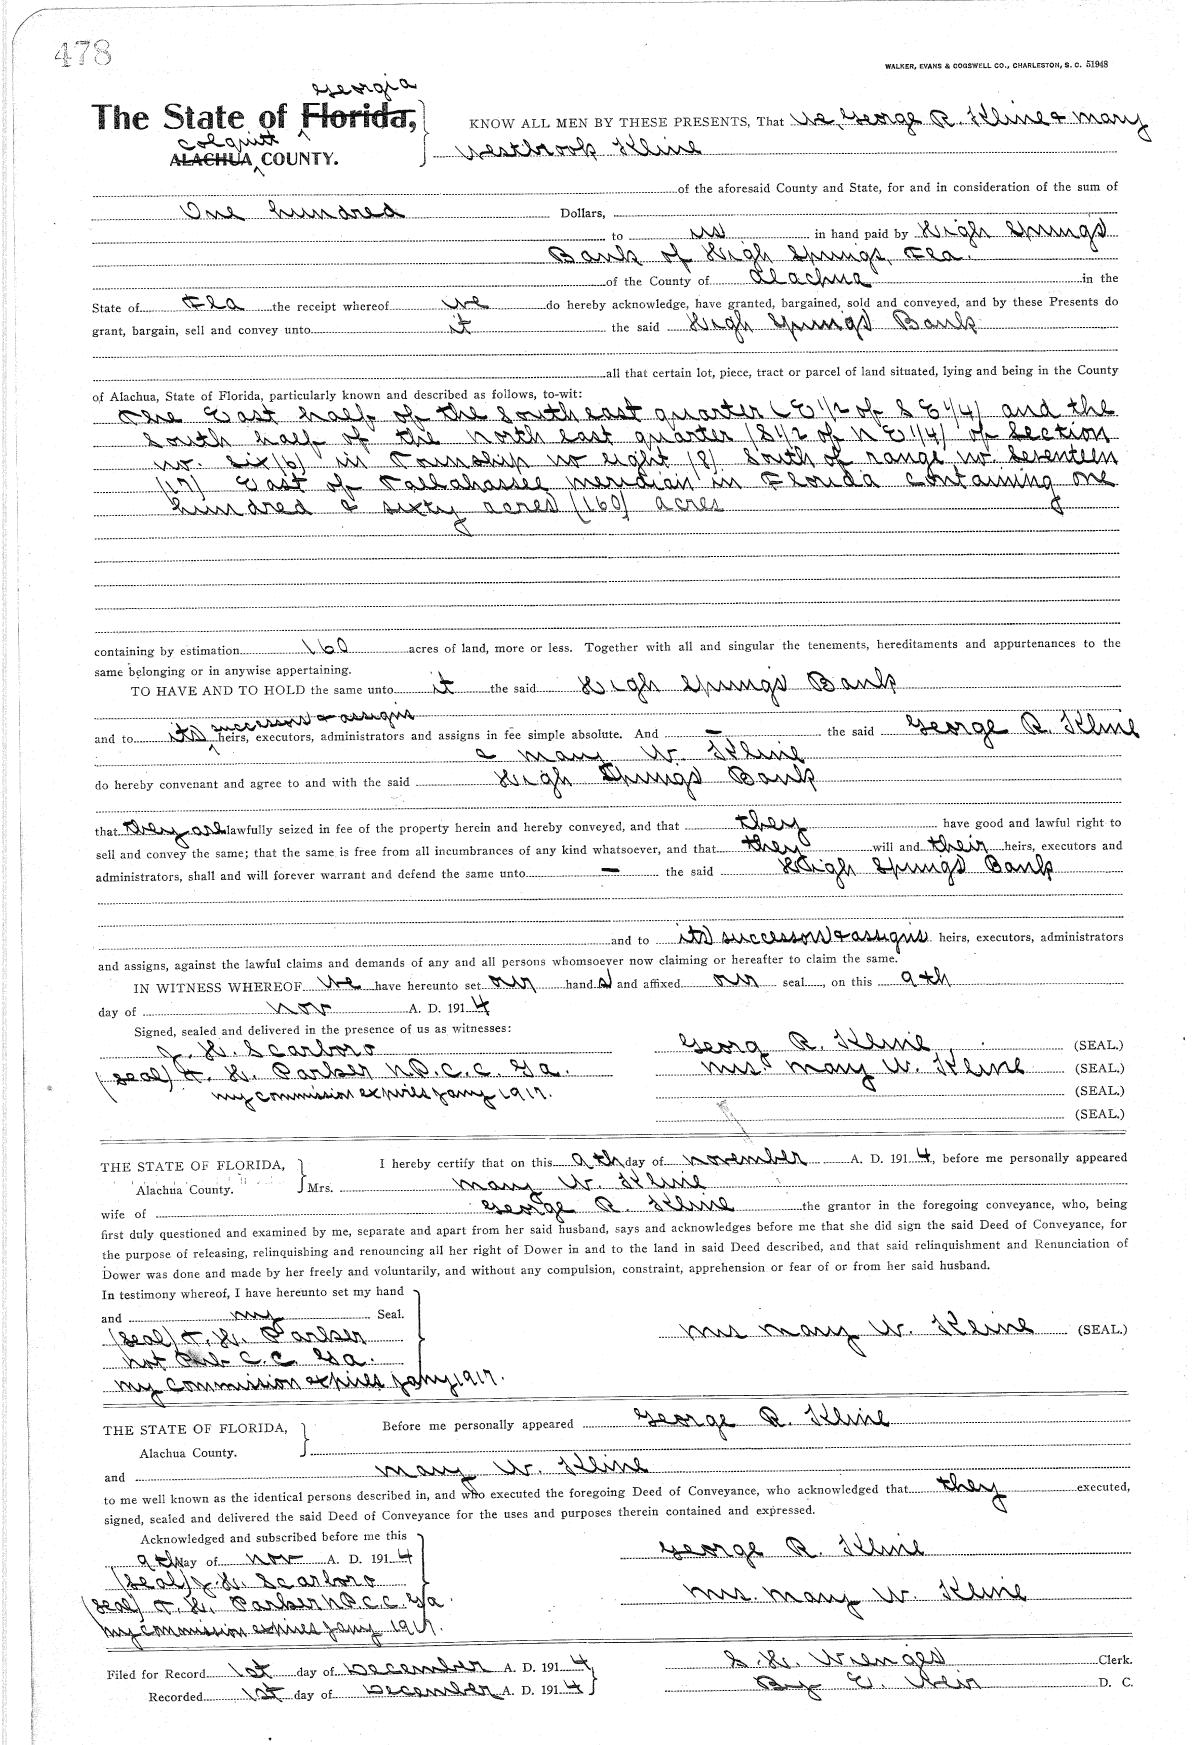 478
WALKER, EVANS & COGSWELL CO., CHARLESTON, S. C. 51948
Georgia
The State of Florida,
KNOW ALL MEN BY THESE PRESENTS, That We, George R. Kline & Mary
Colquitt
ALACHUA COUNTY.
Westbrook Kline
of the aforesaid County and State, for and in consideration of the sum of
One hundred Dollars,
to us in hand paid by High Springs
Bank of High Springs, Fla.
of the County of Alachua in the
State of Fla the receipt whereof we do hereby acknowledge, have granted, bargained, sold and conveyed, and by these Presents do
grant, bargain, sell and convey unto it the said High Springs Bank
all that certain lot, piece, tract or parcel of land situated, lying and being in the County
of Alachua, State of Florida, particularly known and described as follows, to-wit:
The East half of the South east quarter (E 1/2 of S E 1/4) and the
South half of the North east quarter (S 1/2 of N E 1/4) of Section
no. six (6) in Township no eight (8) South of range no. Seventeen
(17) East of Tallahassee meridian in Florida containing one
hundred & sixty acres (160) acres
containing by estimation 160 acres of land, more or less. Together with all and singular the tenements, hereditaments and appurtenances to the
same belonging or in anywise appertaining.
TO HAVE AND TO HOLD the same unto it the said High Springs Bank
successors & assigns
and to its heirs, executors, administrators and assigns in fee simple absolute. And — the said George R. Kline
& Mary W. Kline
do hereby convenant and agree to and with the said High Springs Bank
that they are lawfully seized in fee of the property herein and hereby conveyed, and that they have good and lawful right to
sell and convey the same; that the same is free from all incumbrances of any kind whatsoever, and that they will and their heirs, executors and
administrators, shall and will forever warrant and defend the same unto — the said High Springs Bank
and to its successors & assigns heirs, executors, administrators
and assigns, against the lawful claims and demands of any and all persons whomsoever now claiming or hereafter to claim the same.
IN WITNESS WHEREOF we have hereunto set our hands and affixed our seal, on this 9th
day of Nov A. D. 1914
Signed, sealed and delivered in the presence of us as witnesses:
J. H. Scarboro George R. Kline (SEAL.)
(seal) T. H. Parker N.P.C.C. Ga. Mrs Mary W. Kline (SEAL.)
my commission expires Jany 1917. (SEAL.)
(SEAL.)
THE STATE OF FLORIDA, I hereby certify that on this 9th day of November A. D. 1914, before me personally appeared
Alachua County. Mrs. Mary W. Kline
wife of George R. Kline the grantor in the foregoing conveyance, who, being
first duly questioned and examined by me, separate and apart from her said husband, says and acknowledges before me that she did sign the said Deed of Conveyance, for
the purpose of releasing, relinquishing and renouncing all her right of Dower in and to the land in said Deed described, and that said relinquishment and Renunciation of
Dower was done and made by her freely and voluntarily, and without any compulsion, constraint, apprehension or fear of or from her said husband.
In testimony whereof, I have hereunto set my hand
and my Seal.
(seal) T. H. Parker Mrs Mary W. Kline (SEAL.)
Not Pub C.C. Ga.
my commission expires Jany 1917.
THE STATE OF FLORIDA, Before me personally appeared George R. Kline
Alachua County.
and Mary W. Kline
to me well known as the identical persons described in, and who executed the foregoing Deed of Conveyance, who acknowledged that they executed,
signed, sealed and delivered the said Deed of Conveyance for the uses and purposes therein contained and expressed.
Acknowledged and subscribed before me this
9th day of Nov A. D. 1914 George R. Kline
(seal) J. H. Scarboro
(seal) T. H. Parker N.P.C.C. Ga. Mrs. Mary W. Kline
my commission expires Jany 1917.
Filed for Record 1st day of December A. D. 1914 S. H. Wienges Clerk.
Recorded 1st day of December A. D. 1914 By E. Weir D. C.